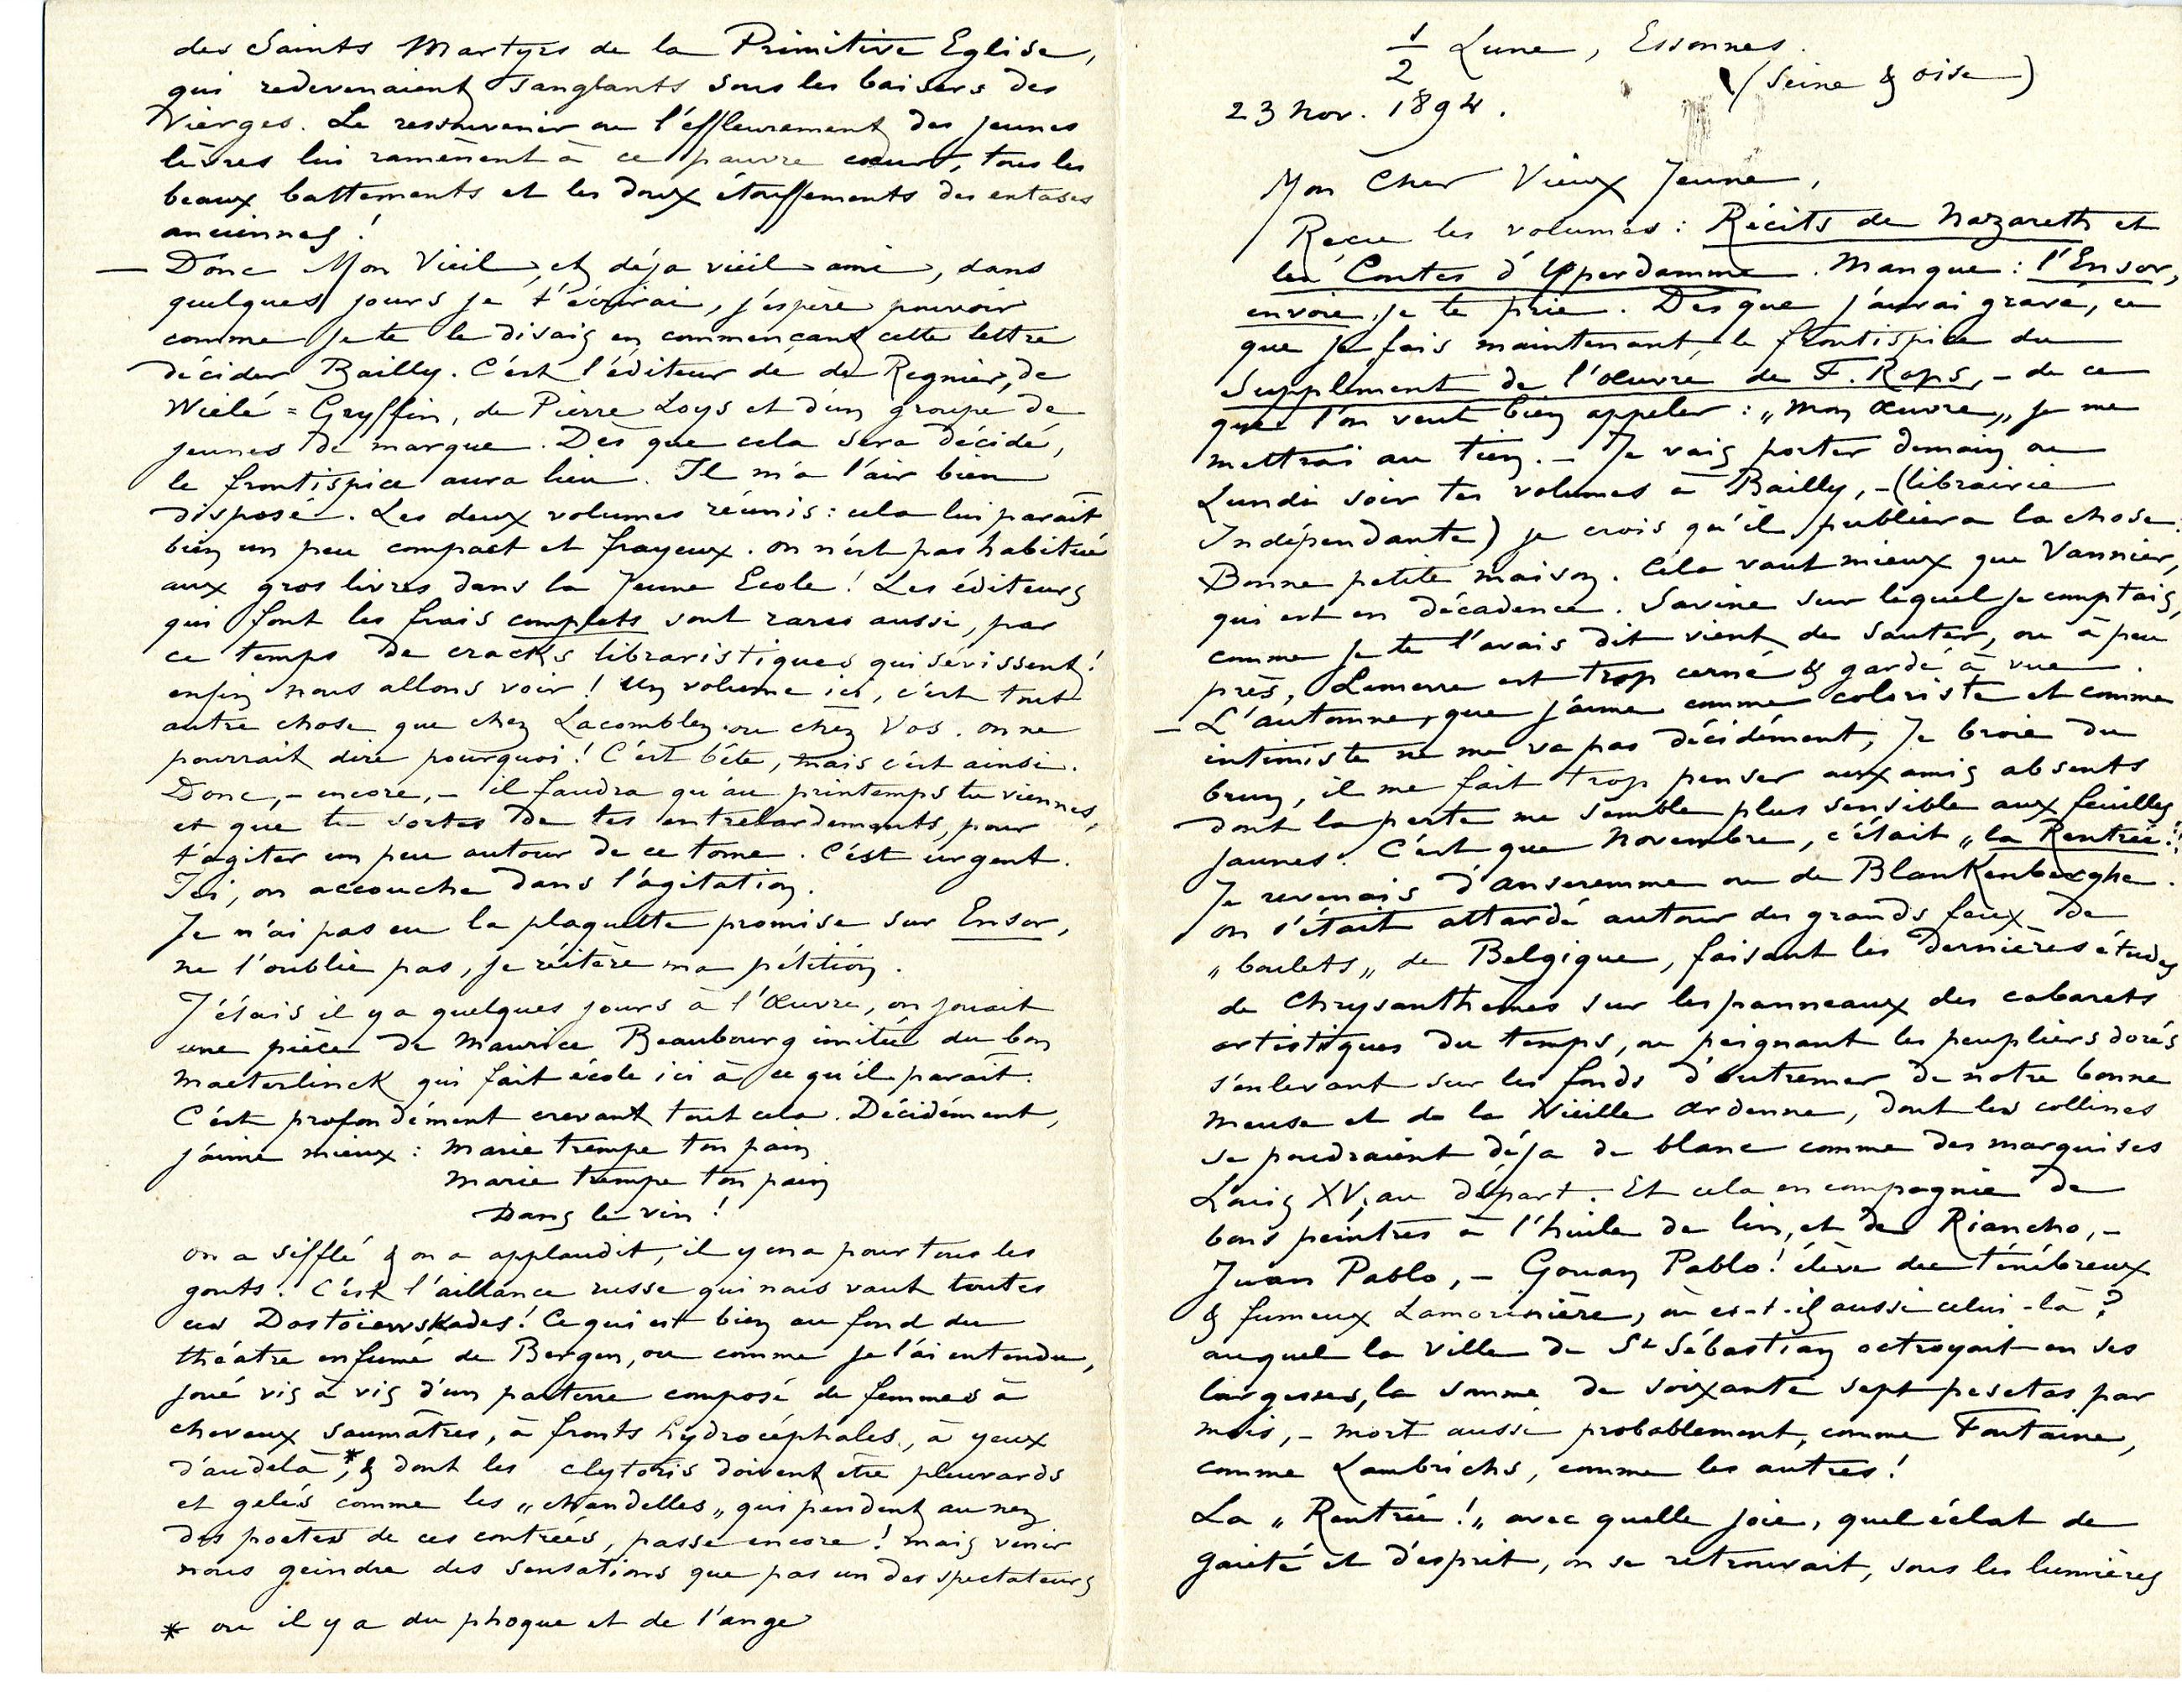 1/2 Lune, Essonnes.
(Seine & oise)
23 Nov. 1894.
Mon Cher Vieux Jeune,
Reçu les volumes : Récits de Nazareth et
les Contes d'Yperdamme. Manque : l'Ensor,
envoie, je te prie. Dès que j'aurai gravé, ce
que je fais maintenant, le frontispice du
Supplément de l'œuvre de F. Rops, – de ce
que l'on veut bien appeler : „mon Œuvre„ je me
mettrai au tien. – Je vais porter demain ou
Lundi soir tes volumes à Bailly, – (librairie
Indépendante) je crois qu'il publiera la chose.
Bonne petite maison. Cela vaut mieux que Vannier,
qui est en décadence. Savine sur lequel je comptais,
comme je te l'avais dit vient de sauter, ou à peu
près, Lemerre est trop cerné & gardé à vue.
– L'automne, que j'aime comme coloriste et comme
intimiste ne me va pas décidément, Je broie du
brun, il me fait trop penser aux amis absents
dont la perte me semble plus sensible aux feuilles
jaunes. C'est que Novembre, c'était „la Rentrée!!
Je revenais d'Anseremme ou de Blankenberghe.
on s'était attardé autour des grands feux de
„boulets„ de Belgique, faisant les dernières études
de Chrysanthèmes sur les panneaux des cabarets
artistiques du temps, ou peignant les peupliers dorés
s'enlevant sur les fonds d'outremer de notre bonne
Meuse et de la Vieille Ardenne, dont les collines
se poudraient déja de blanc comme des marquises
Louis XV, au départ. Et cela en compagnie de
bons peintres à l'huile de lin, et de Riancho, –
Juan Pablo, – Gouan Pablo! élève du ténébreux
& fumeux Lamorinière, où es-t-il aussi celui-là ?
auquel la Ville de St Sébastian octroyait en ses
largesses, la somme de soixante sept pesetas par
mois, – mort aussi probablement, comme Fontaine,
comme Lambrichs, comme les autres!
La „Rentrée!„ avec quelle joie, quel éclat de
gaieté et d'esprit, on se retrouvait, sous les lumières
des Saints Martyrs de la Primitive Eglise,
qui redevenaient sanglants sous les baisers des
Vierges. Le ressouvenir ou l'effleurement des jeunes
lèvres lui ramènent à ce pauvre cœur, tous les
beaux battements et les doux étouffements des extases
anciennes!
— Donc Mon Vieil, et déja vieil ami, dans
quelques jours je t'écrirai, j'espère pouvoir
comme je te le disais en commençant cette lettre
décider Bailly. C'est l'éditeur de de Regnier, de
Wielé = Gryffin, de Pierre Loys et d'un groupe de
jeunes de marque. Dès que cela sera décidé,
le frontispice aura lieu. Il m'a l'air bien
disposé. Les deux volumes réunis : cela lui parait
bien un peu compact et frayeux. on n'est pas habitué
aux gros livres dans la Jeune Ecole! Les éditeurs
qui font les frais complets sont rares aussi, par
ce temps de cracks libraristiques qui sévissent!
enfin nous allons voir! Un volume ici, c'est tout
autre chose que chez Lacomblez ou chez Vos. on ne
pourrait dire pourquoi! C'est bête, mais c'est ainsi.
Donc, – encore, – il faudra qu'au printemps tu viennes,
et que tu sortes de tes entrelardements, pour
t'agiter un peu autour de ce tome. C'est urgent.
Ici, on accouche dans l'agitation.
Je n'ai pas eu la plaquette promise sur Ensor,
ne l'oublie pas, je réitère ma pétition.
J'étais il y a quelques jours à l'Œuvre, on jouait
une pièce de Maurice Beaubourg imitée du bon
Maeterlinck qui fait école ici à ce qu'il parait.
C'est profondément crevant tout cela. Décidément,
j'aime mieux : Marie trempe ton pain
Marie trempe ton pain
Dans le vin!
on a sifflé & on a applaudit, il y en a pour tous les
gouts! C'est l'aillance russe qui nous vaut toutes
ces Dostoïewskades! Ce qui est bien au fond du
théatre enfumé de Bergen, ou comme je l'ai entendu,
joué vis à vis d'un parterre composé de femmes à
cheveux saumâtres, à fronts hydrocéphales, à yeux
d'audelà*, & dont les clytoris doivent être pleuvards
et gelés comme les „chandelles„ qui pendent au nez
des poètes de ces contrées, passe encore! mais venir
nous geindre des sensations que pas un des spectateurs
* ou il y a du phoque et de l'ange